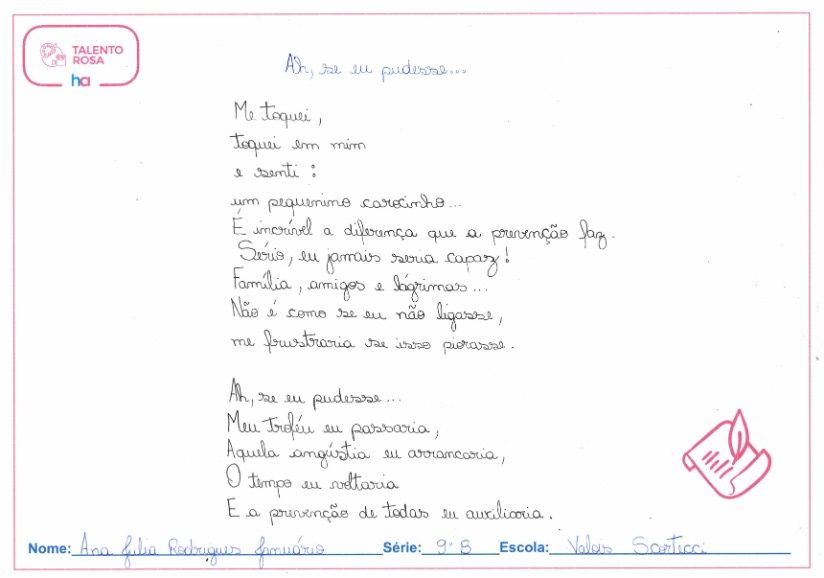 TALENTO
ROSA
ha
Ah, se eu pudesse...
Me toquei,
toquei em mim
e senti:
um pequenino carocinho...
É incrível a diferença que a prevenção faz.
Sério, eu jamais seria capaz!
Família, amigos e lágrimas...
Não é como se eu não ligasse,
me frustraria se isso piorasse.
Ah, se eu pudesse...
Meu troféu eu passaria,
Aquela angústia eu arrancaria,
O tempo eu voltaria
E a prevenção de todas eu auxiliaria.
Nome: Ana Julia Rodrigues Januário Série: 9º B Escola: Valois Scortecci